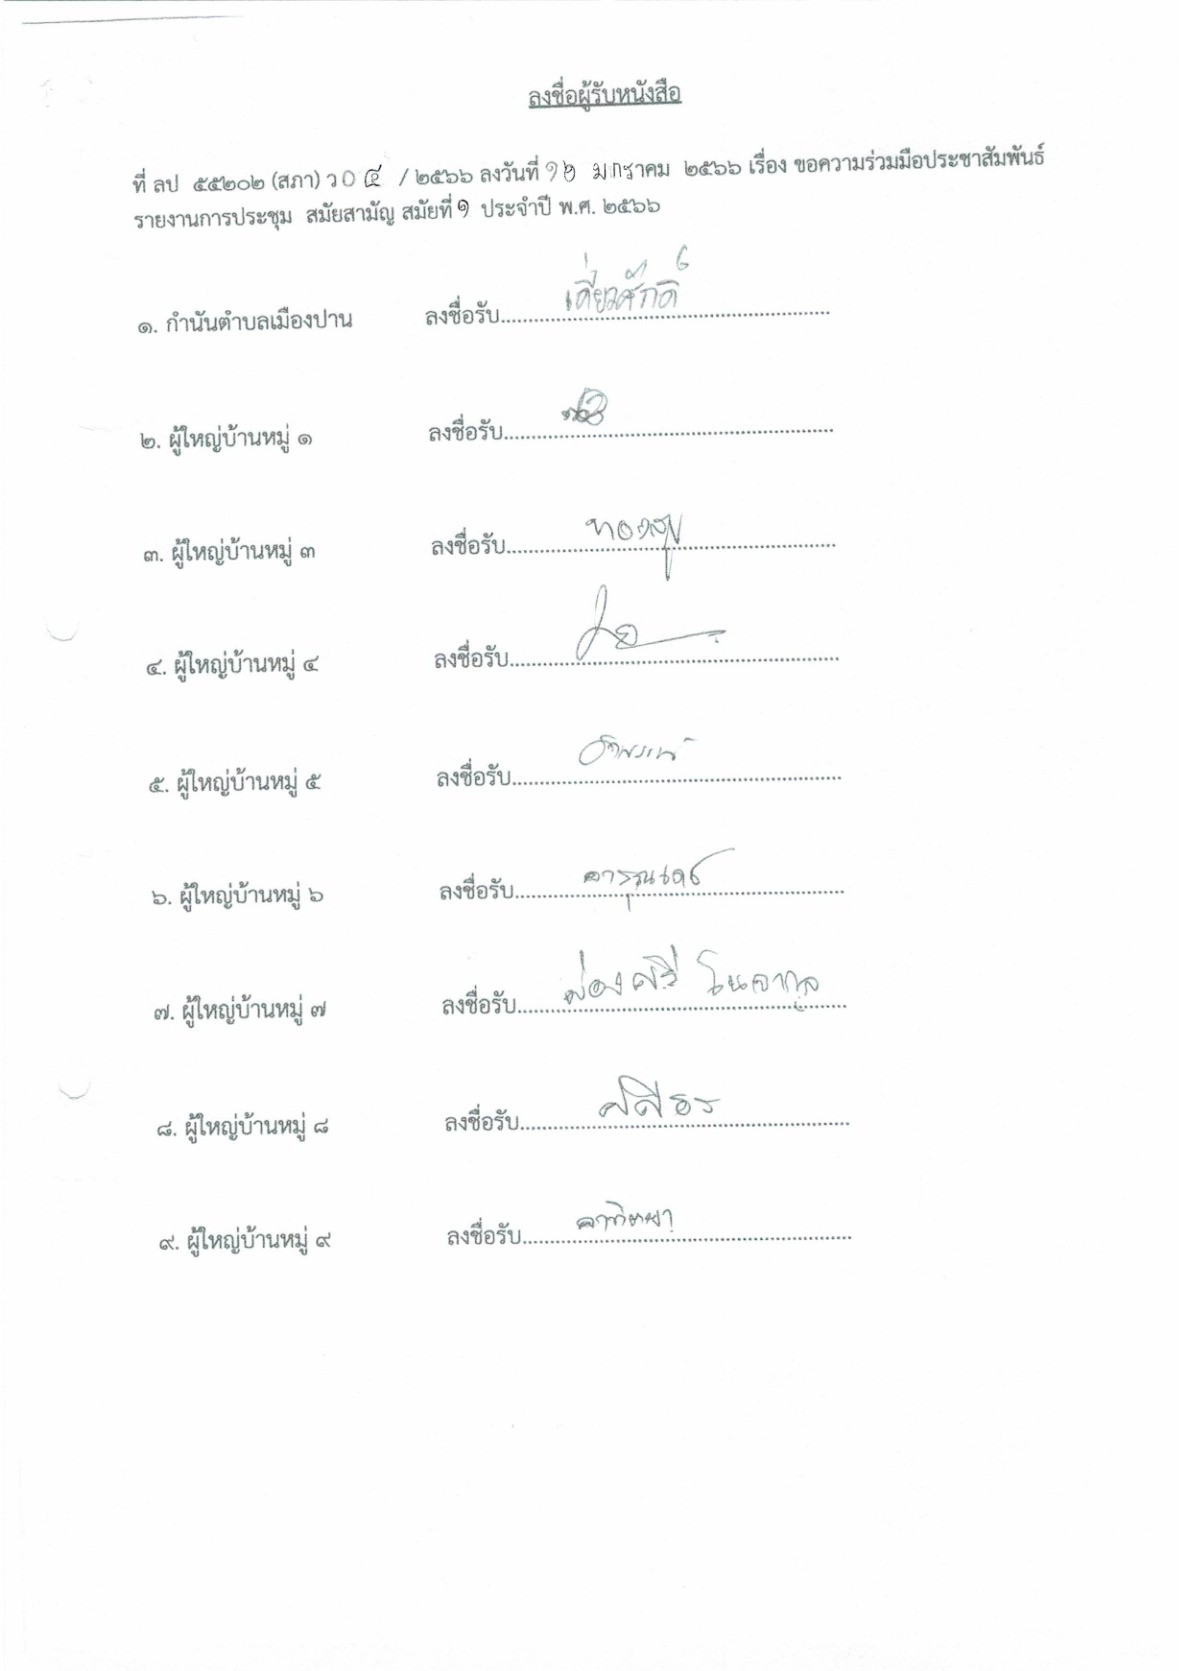 ลงชื่อผู้รับหนังสือ
ที่ ลป ๕๕๒๐๒ (สภา) ว ๐ ๔ / ๒๕๖๖ ลงวันที่ ๑๖ มกราคม ๒๕๖๖ เรื่อง ขอความร่วมมือประชาสัมพันธ์
รายงานการประชุม สมัยสามัญ สมัยที่ ๑ ประจำปี พ.ศ. ๒๕๖๖
๑. กำนันตำบลเมืองปาน ลงชื่อรับ..........เดี่ยวศักดิ์..........
๒. ผู้ใหญ่บ้านหมู่ ๑ ลงชื่อรับ....................
๓. ผู้ใหญ่บ้านหมู่ ๓ ลงชื่อรับ....................
๔. ผู้ใหญ่บ้านหมู่ ๔ ลงชื่อรับ....................
๕. ผู้ใหญ่บ้านหมู่ ๕ ลงชื่อรับ....................
๖. ผู้ใหญ่บ้านหมู่ ๖ ลงชื่อรับ....................
๗. ผู้ใหญ่บ้านหมู่ ๗ ลงชื่อรับ....................
๘. ผู้ใหญ่บ้านหมู่ ๘ ลงชื่อรับ....................
๙. ผู้ใหญ่บ้านหมู่ ๙ ลงชื่อรับ....................